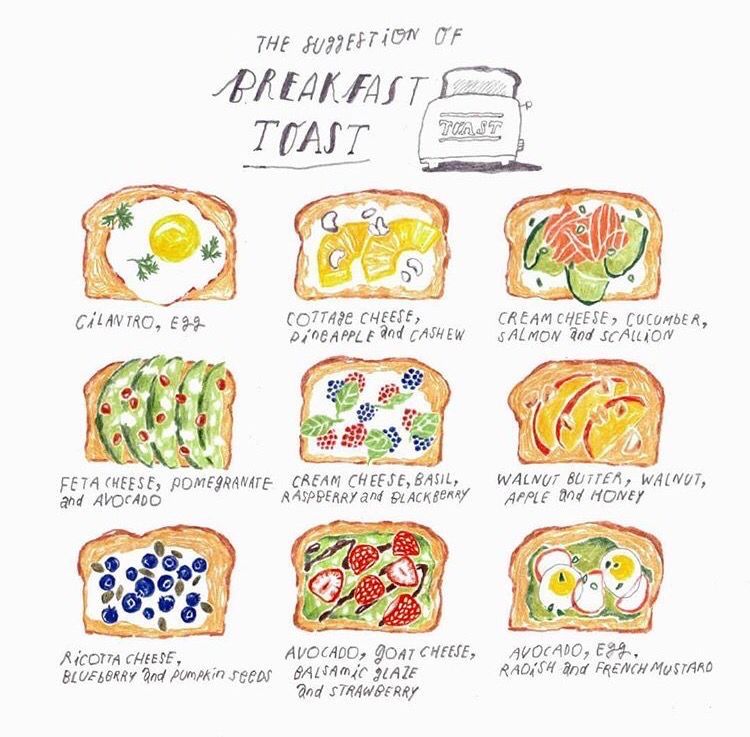 THE SUGGESTION OF
BREAKFAST
TOAST
TOAST
CILANTRO, EGG
COTTAGE CHEESE,
PINEAPPLE and CASHEW
CREAM CHEESE, CUCUMBER,
SALMON and SCALLION
FETA CHEESE, POMEGRANATE
and AVOCADO
CREAM CHEESE, BASIL,
RASPBERRY and BLACKBERRY
WALNUT BUTTER, WALNUT,
APPLE and HONEY
RICOTTA CHEESE,
BLUEBERRY and PUMPKIN SEEDS
AVOCADO, GOAT CHEESE,
BALSAMIC GLAZE
and STRAWBERRY
AVOCADO, EGG,
RADISH and FRENCH MUSTARD